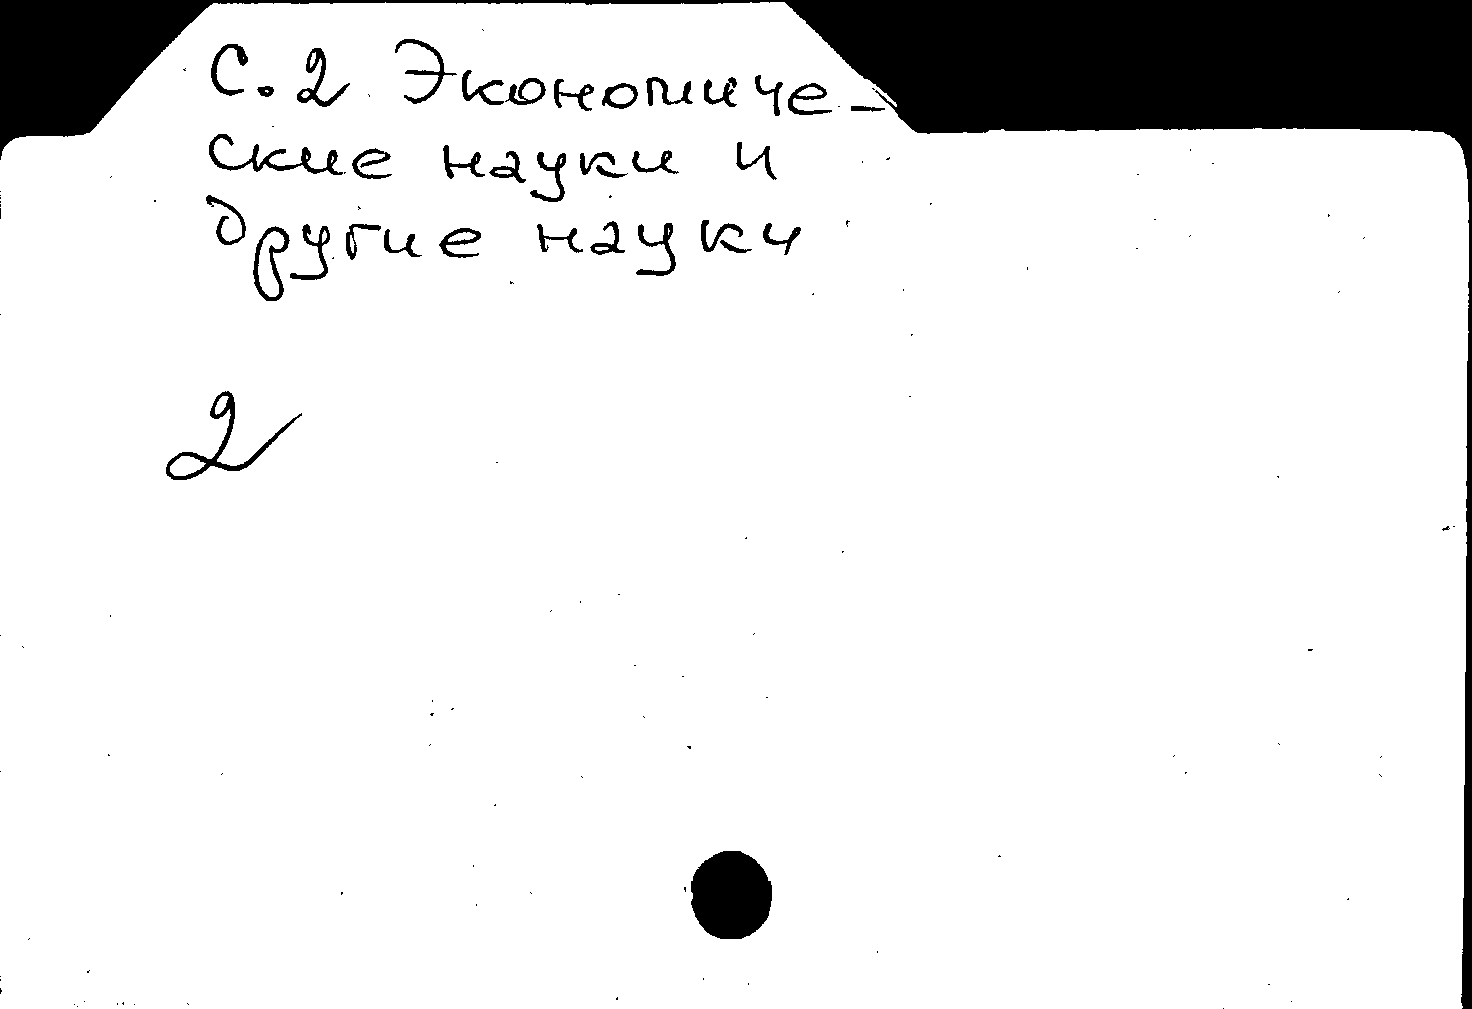 С.2 Экономиче-
ские науки и
другие науки
2